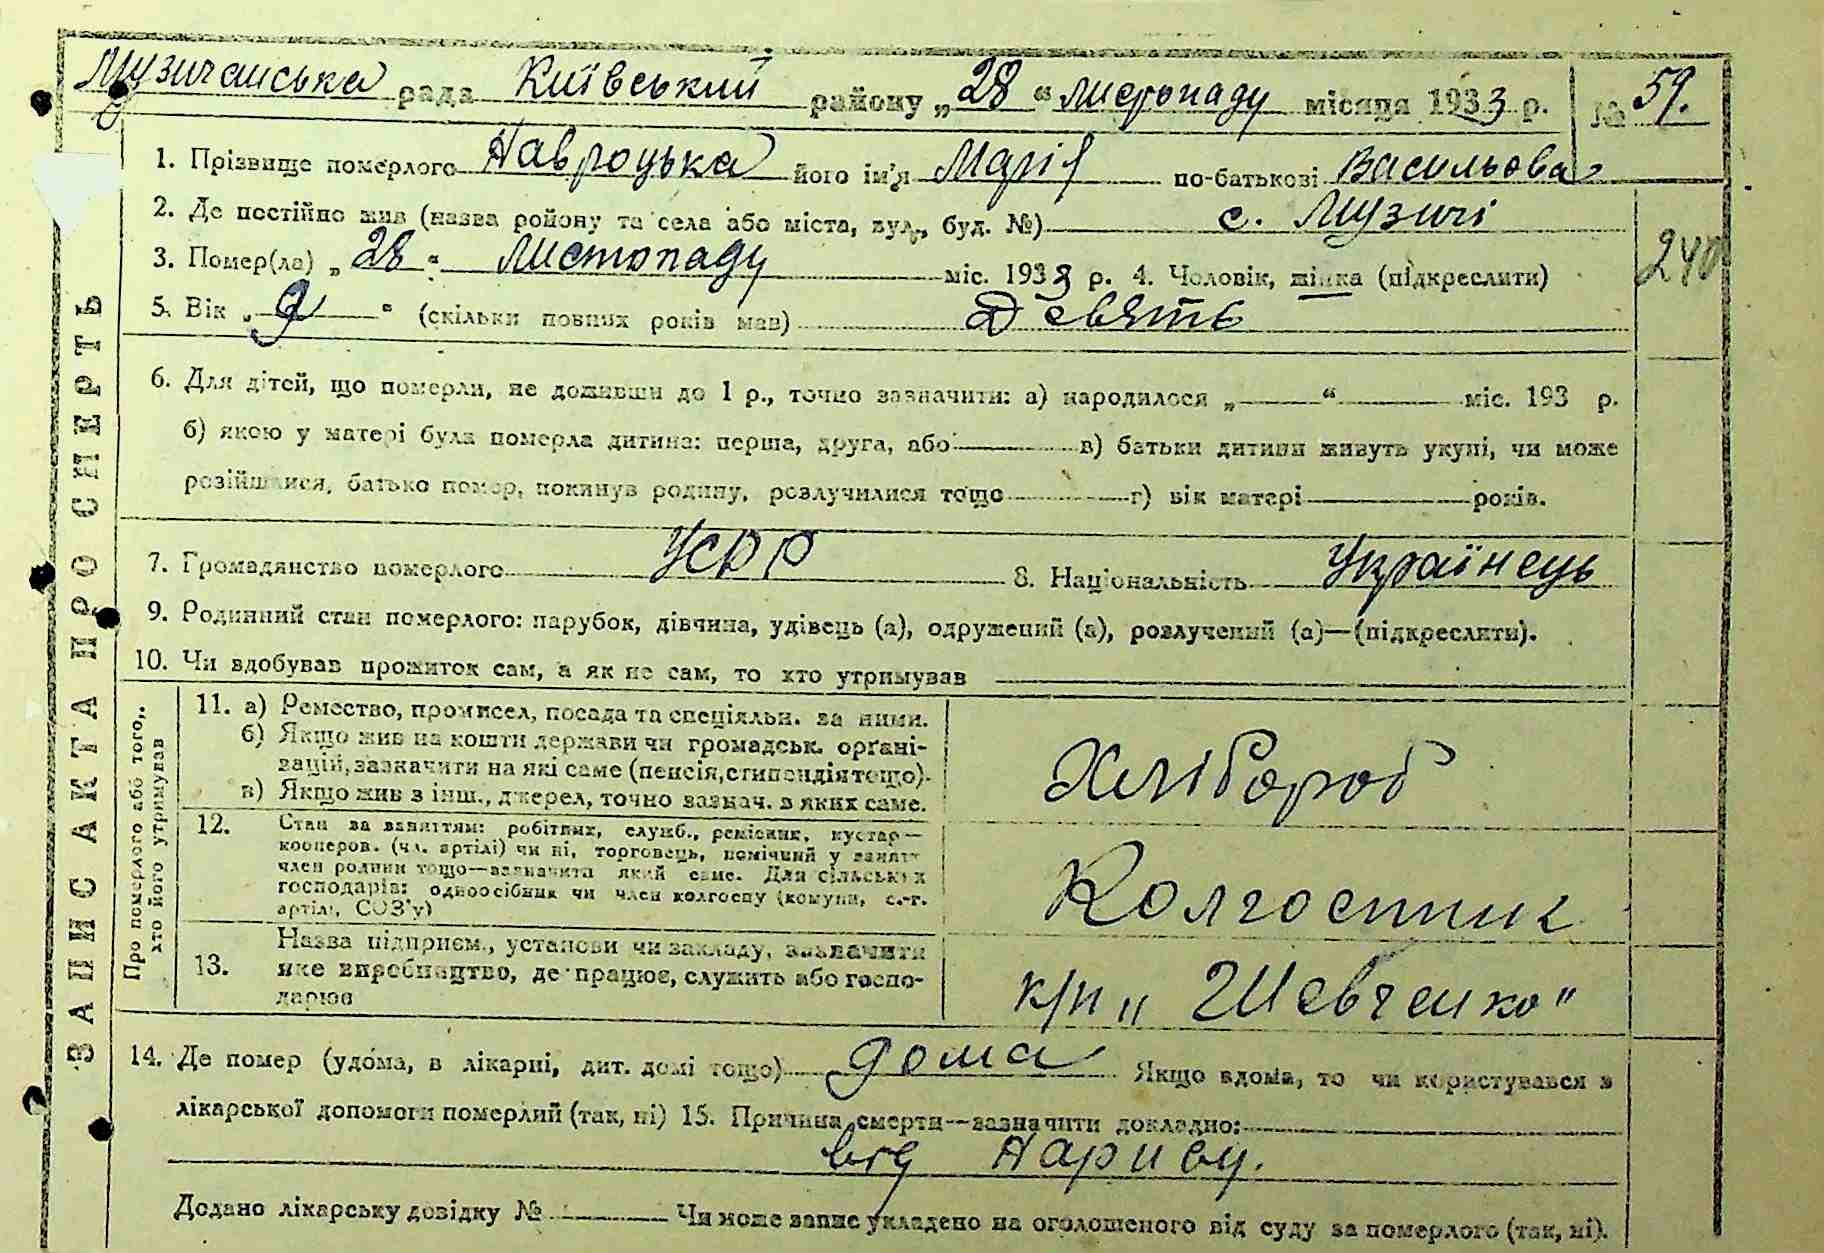 Музичанська рада Київський району „28“ листопаду місяця 1933 р. № 59.
1. Прізвище померлого Навроцька його ім'я Марія по-батькові Васильова
2. Де постійно жив (назва ройону та села або міста, вул., буд. №) с. Музичі
3. Помер(ла) „28“ листопаду міс. 1933 р. 4. Чоловік, жінка (підкреслити)
240
5. Вік „9“ (скільки повних років мав) девять
6. Для дітей, що померли, не доживши до 1 р., точно зазначити: а) народилося „ “ міс. 193 р.
б) якою у матері була померла дитина: перша, друга, або в) батьки дитини живуть укупі, чи може
розійшлися, батько помер, покинув родину, розлучилися тощо г) вік матері років.
7. Громадянство померлого УСРР 8. Національність Українець
9. Родинний стан померлого: парубок, дівчина, удівець (а), одружений (а), розлучений (а)—(підкреслити).
10. Чи вдобував прожиток сам, а як не сам, то хто утримував
ЗАПИС АКТА ПРО СМЕРТЬ
Про померлого або того,
хто його утримував
11. а) Ремество, промисел, посада та спеціяльн. за ними.
б) Якщо жив на кошти держави чи громадськ. орґані-
зацій, зазначити на які саме (пенсія, стипендія тощо).
в) Якщо жив з інш., джерел, точно зазнач. з яких саме.
Хлібороб
12. Стан за заняттям: робітник, служб., ремісник, кустар—
кооперов. (чл. артілі) чи ні, торговець, помічний у занятт
член родини тощо—зазначити який саме. Для сільських
господарів: одноосібник чи член колгоспу (комуни, с.-г.
артілі, СОЗ'у)
Колгоспник
13. Назва підприєм., установи чи закладу, зазначити
яке виробництво, де працює, служить або госпо-
дарює
к/п „Шевченко"
14. Де помер (удома, в лікарні, дит. домі тощо) дома Якщо вдома, то чи користувався з
лікарської допомоги померлий (так, ні) 15. Причина смерти—зазначити докладно:
від Нариву.
Додано лікарську довідку № Чи може запис укладено на оголошеного від суду за померлого (так, ні).